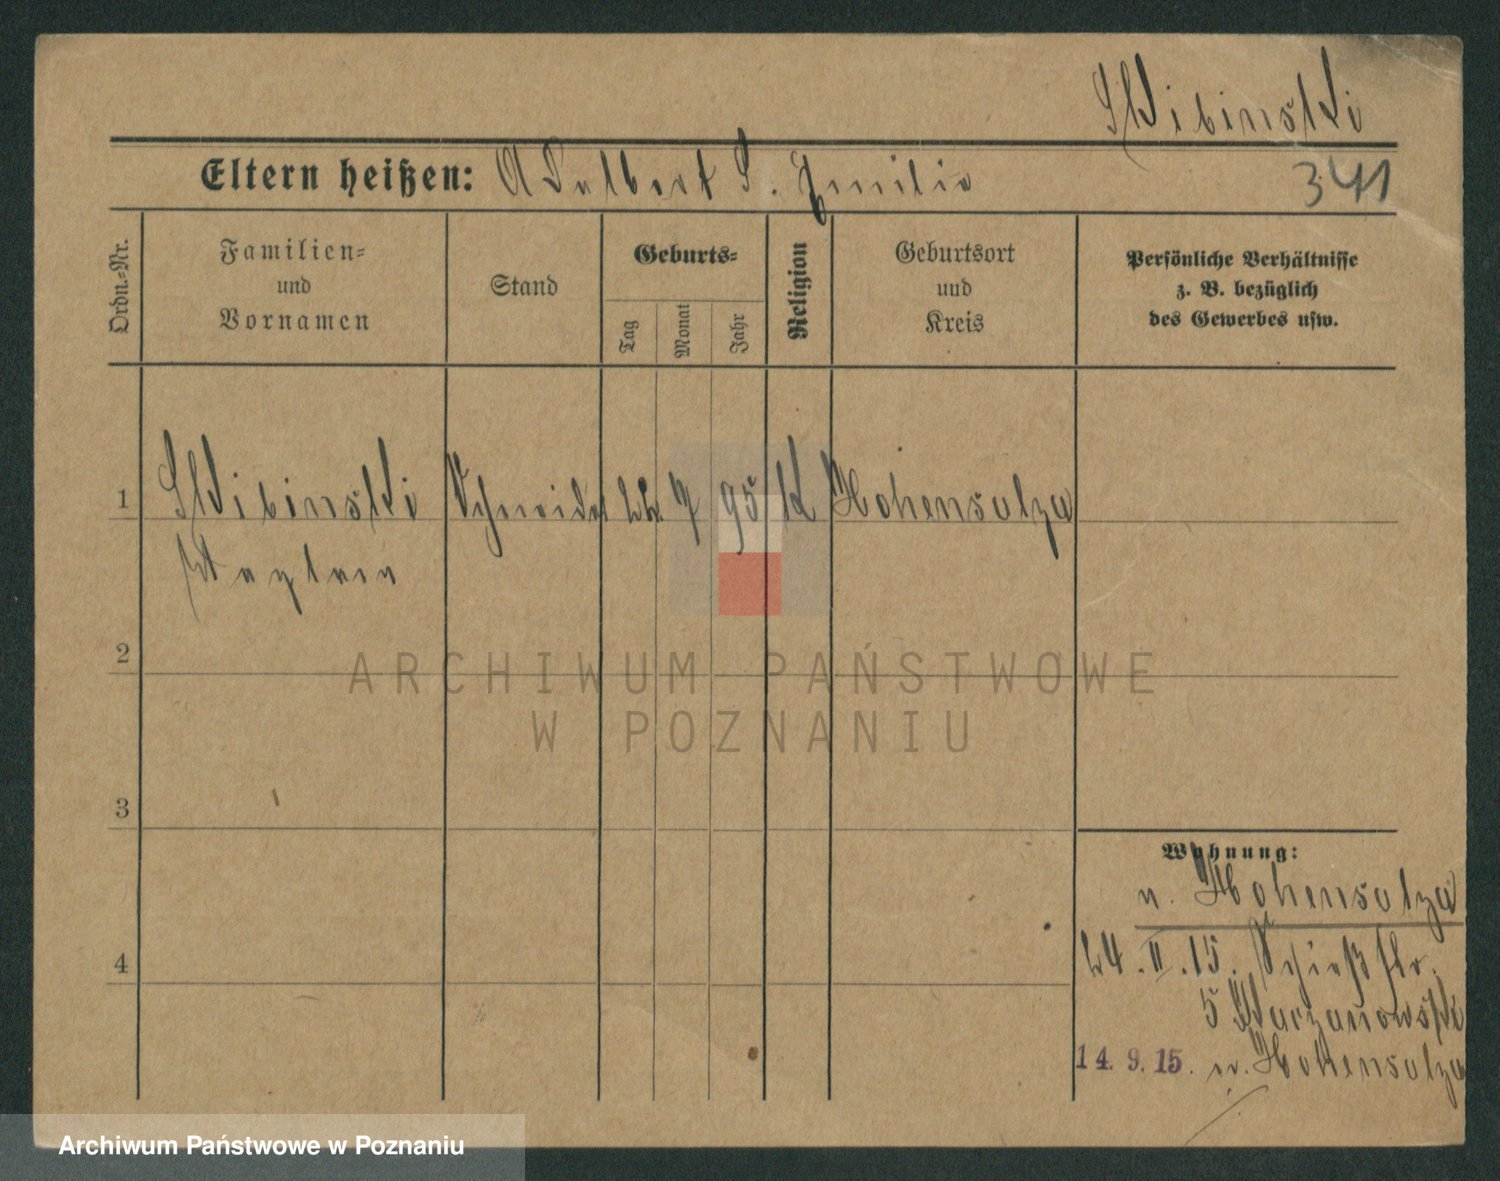 Skibinski
Eltern heißen: Adalbert S. Emilie
341
Ordn.-Nr.
Familien-
und
Vornamen
Stand
Geburts-
Tag
Monat
Jahr
Religion
Geburtsort
und
Kreis
Persönliche Verhältnisse
z. B. bezüglich
des Gewerbes usw.
1
Skibinski
Schneider
7
95
K
Hohensalza
2
3
4
Wohnung:
v. Hohensalza
24.II.15. Schießstr.
5
14.9.15. n. Hohensalza
ARCHIWUM PAŃSTWOWE
W POZNANIU
Archiwum Państwowe w Poznaniu